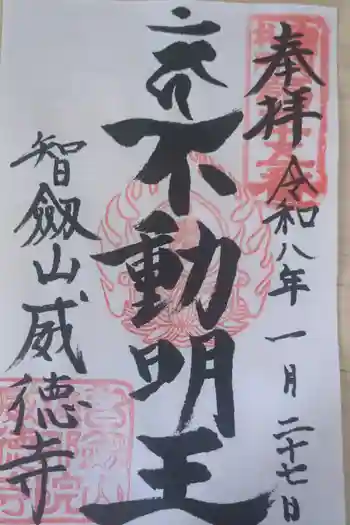 奉拝
令和八年 一月 二十七日
不動明王
智劔山 威徳寺